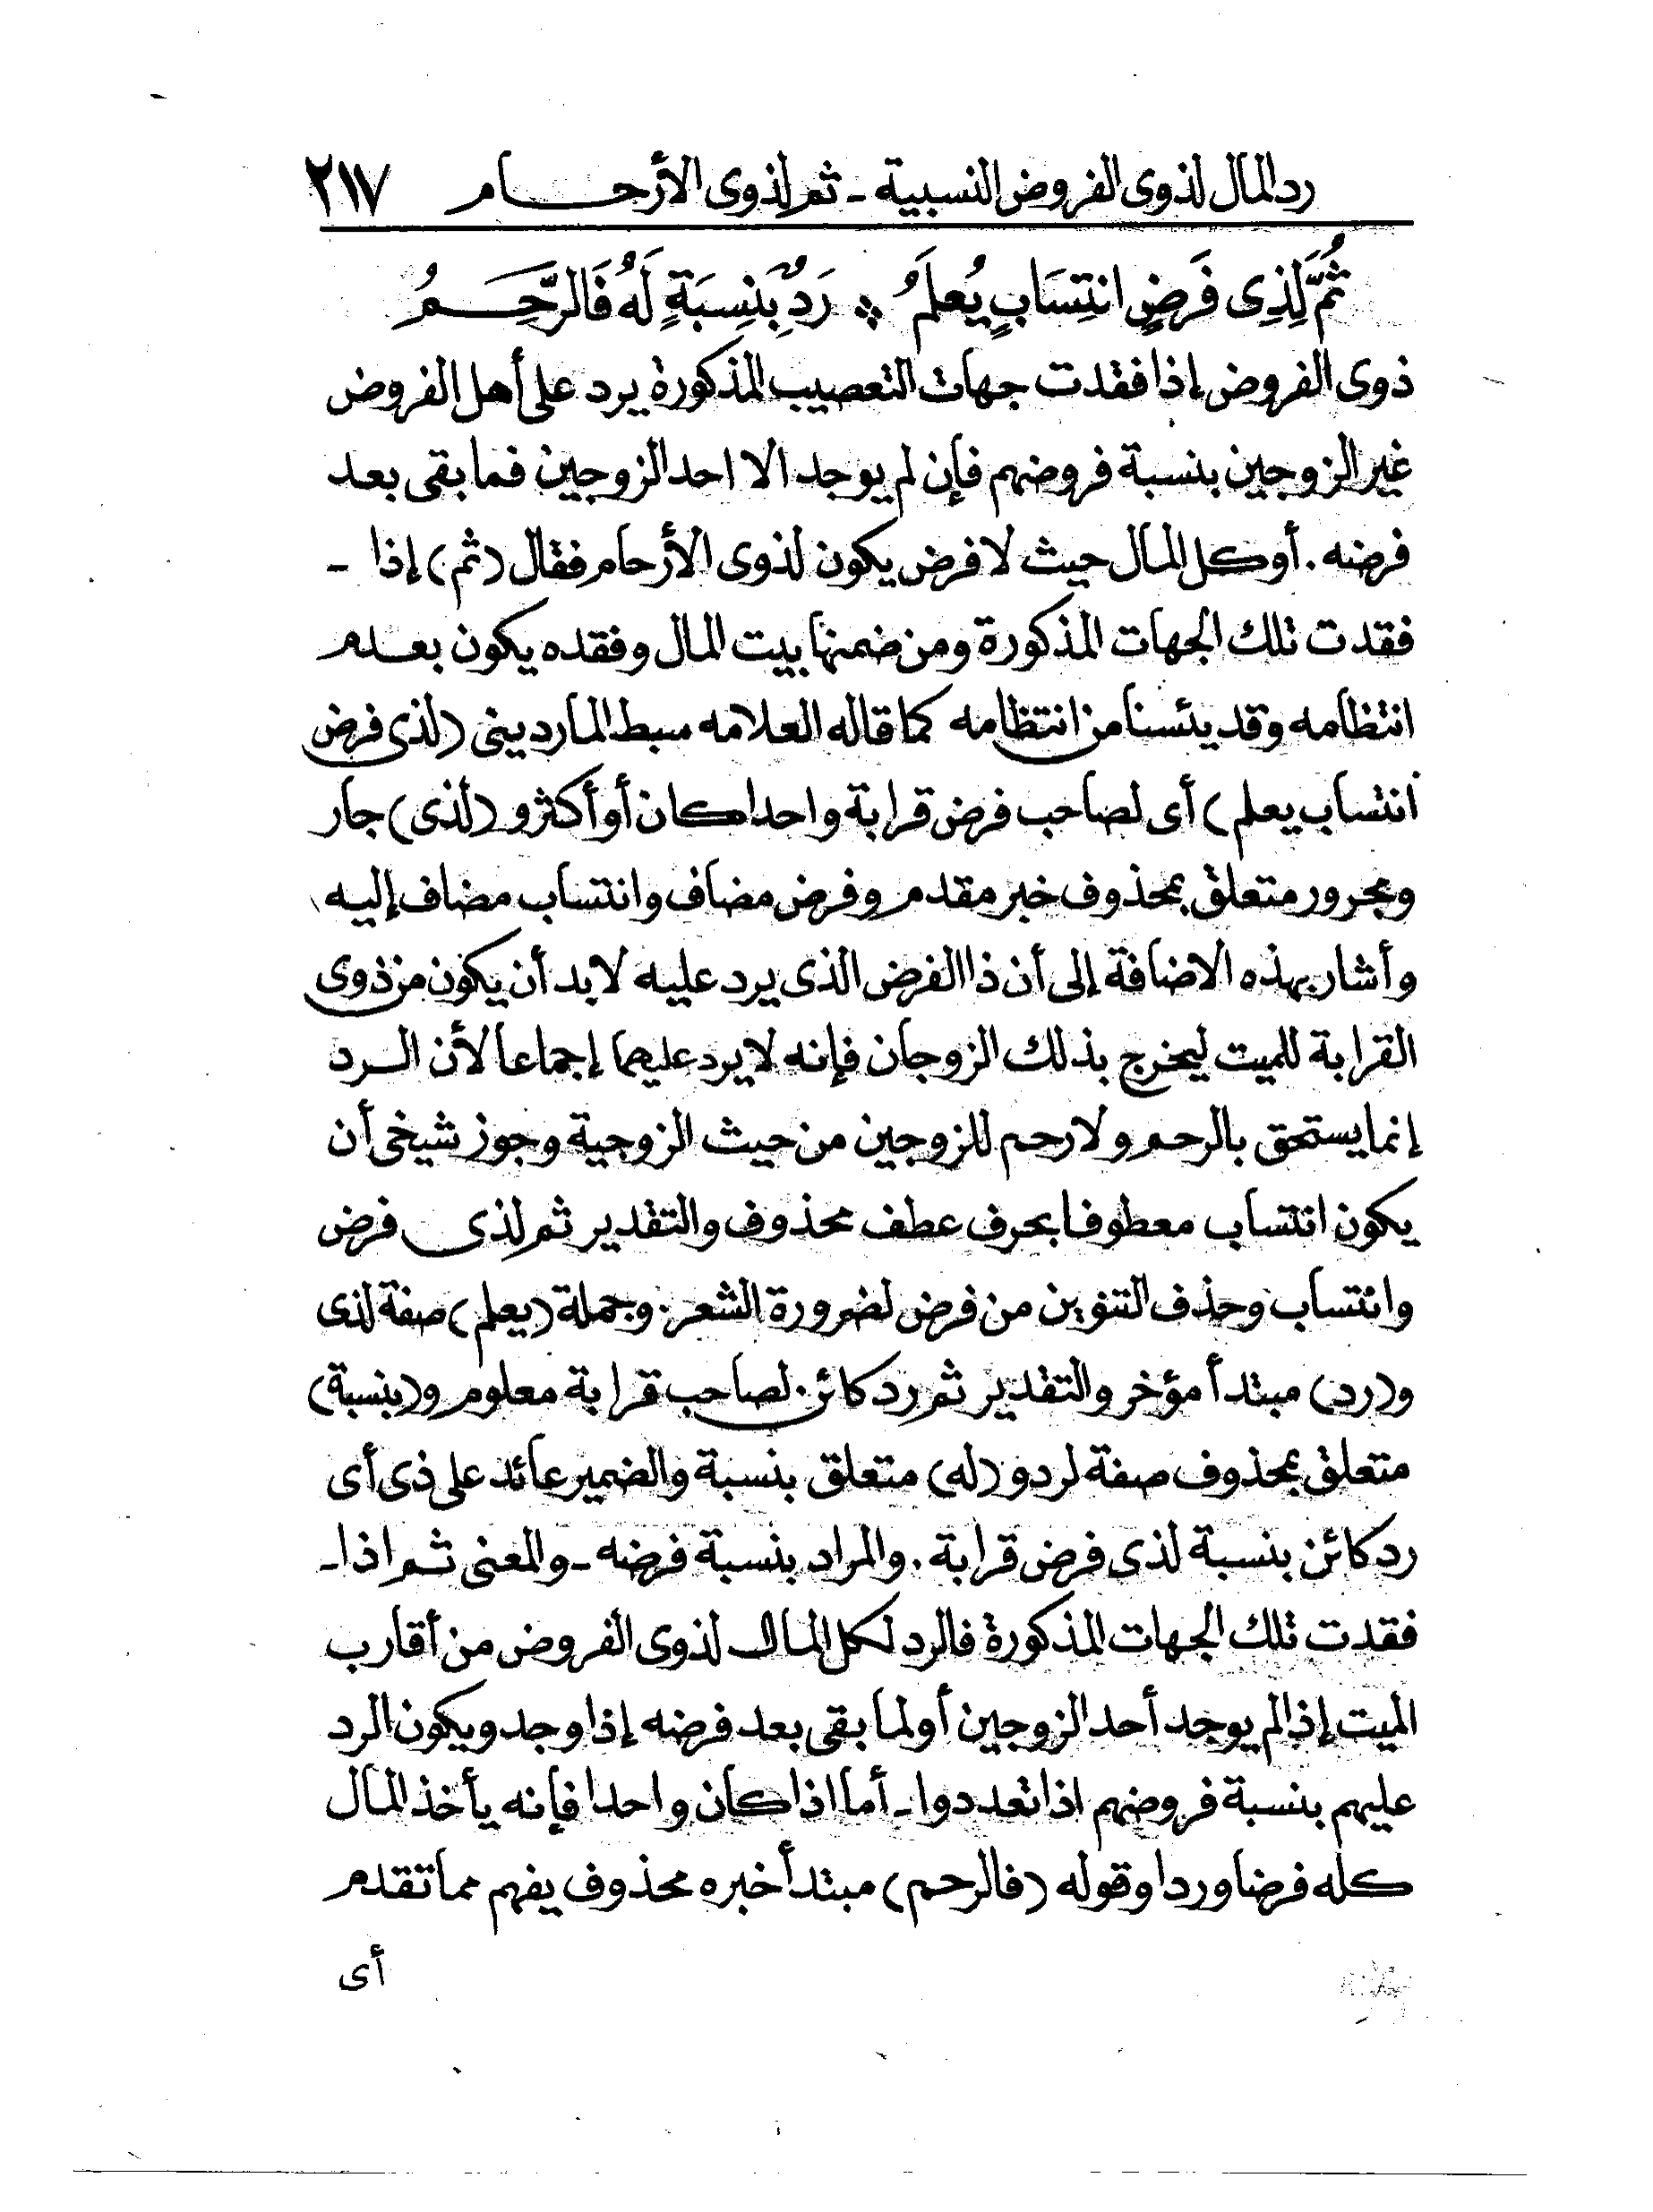 رد المال لذوى الفروض النسبية - ثم لذوى الأرحـــام ٢١٧
ثُمَّ لِذِى فَرَضِ انتِسَابٍ يُعلَمُ * رَدٌّ بِنِسبَةٍ لَهُ فَالرَّحِـــمُ
ذوى الفروض إذا فقدت جهات التعصيب المذكورة يرد على أهل الفروض
غير الزوجين بنسبة فروضهم فإن لم يوجد الا احد الزوجين فما بقى بعد
فرضه . أوكل المال حيث لا فرض يكون لذوى الأرحام فقال (ثم) إذا -
فقدت تلك الجهات المذكورة ومن ضمنها بيت المال وفقده يكون بعدم
انتظامه وقد يئسنا من انتظامه كما قاله العلامه سبط المارديني (لذى فرض
انتساب يعلم) أى لصاحب فرض قرابة واحدا كان أو أكثر و (لذى) جار
ومجرور متعلق بمحذوف خبر مقدم وفرض مضاف وانتساب مضاف إليه
وأشار بهذه الاضافة إلى أن ذا الفرض الذى يرد عليه لا بد أن يكون من ذوى
القرابة للميت ليخرج بذلك الزوجان فإنه لا يرد عليهما إجماعا لأن الرد
إنما يستحق بالرحم ولا رحم للزوجين من حيث الزوجية وجوز شيخى أن
يكون انتساب معطوفا بحرف عطف محذوف والتقدير ثم لذى فرض
وانتساب وحذف التنوين من فرض لضرورة الشعر . وجملة (يعلم) صفة لذى
و(رد) مبتدأ مؤخر والتقدير ثم رد كائن لصاحب قرابة معلوم و(بنسبة)
متعلق بمحذوف صفة لرد و (له) متعلق بنسبة والضمير عائد على ذى أى
رد كائن بنسبة لذى فرض قرابة . والمراد بنسبة فرضه - والمعنى ثم اذا -
فقدت تلك الجهات المذكورة فالرد لكل المال لذوى الفروض من أقارب
الميت إذا لم يوجد أحد الزوجين أو لما بقى بعد فرضه إذا وجد ويكون الرد
عليهم بنسبة فروضهم اذا تعددوا - أما اذا كان واحدا فإنه يأخذ المال
كله فرضا وردا وقوله (فالرحم) مبتدأ خبره محذوف يفهم مما تقدم
أى